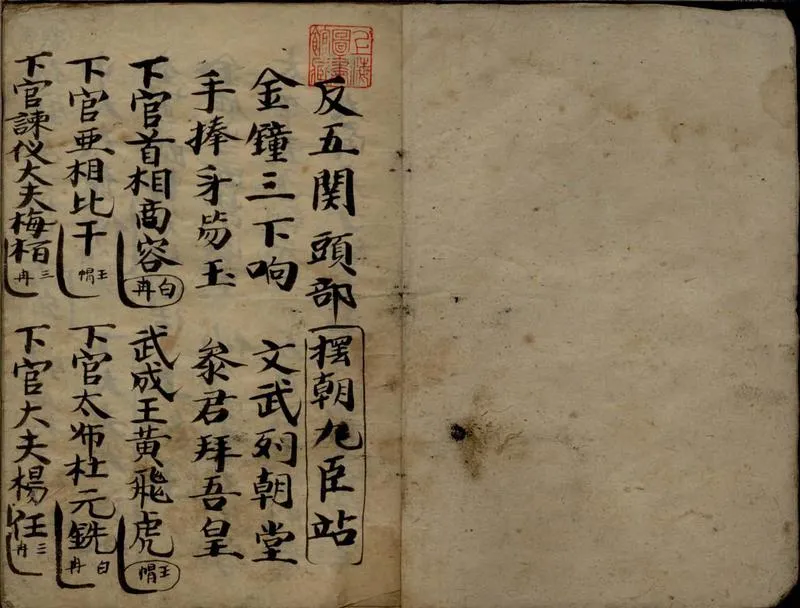 上海圖書館藏
反五関頭部 摆朝九臣站
金鐘三下响 文武列朝堂
手捧牙笏玉 叅君拜吾皇
下官首相商容 白冉 武成王黄飛虎 王帽
下官亜相比干 王帽 下官太师杜元銑 白冉
下官諫仪大夫梅栢 三冉 下官大夫楊任 三冉